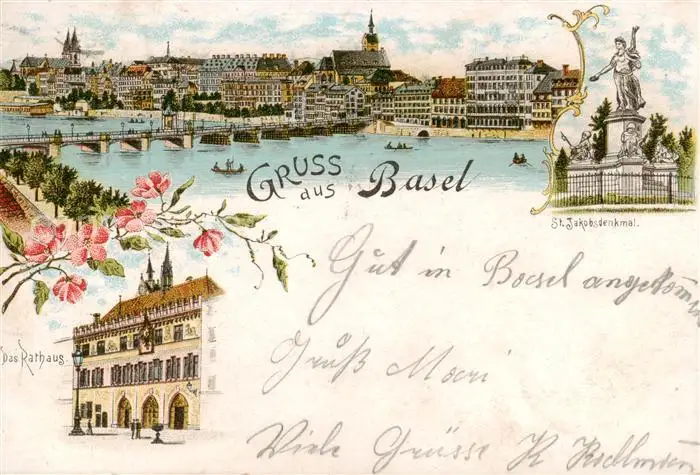 GRUSS
aus Basel
St. Jakobsdenkmal.
Das Rathaus.
Gut in Basel angekomm
Gruß
Viele Grüsse K